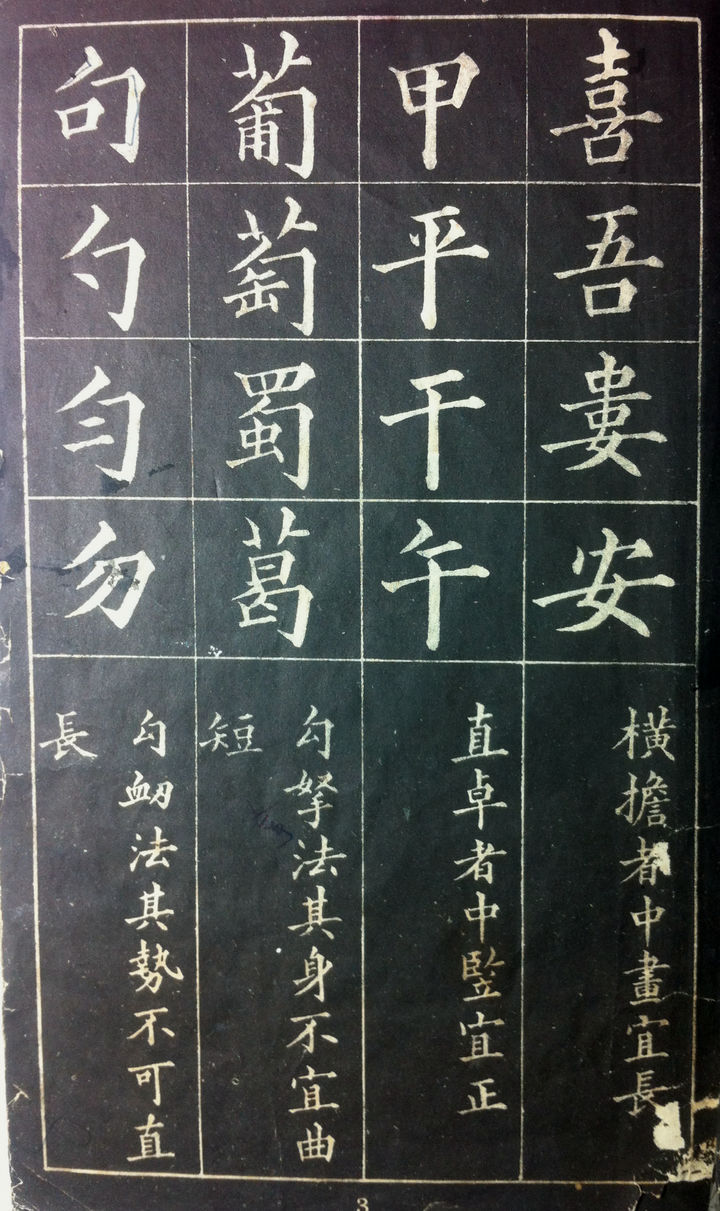 喜吾婁安
橫擔者中畫宜長
甲平干午
直卓者中竪宜正
葡萄蜀葛
勾拏法其身不宜曲
短
句勺勻勿
勾衂法其勢不可直
長
3